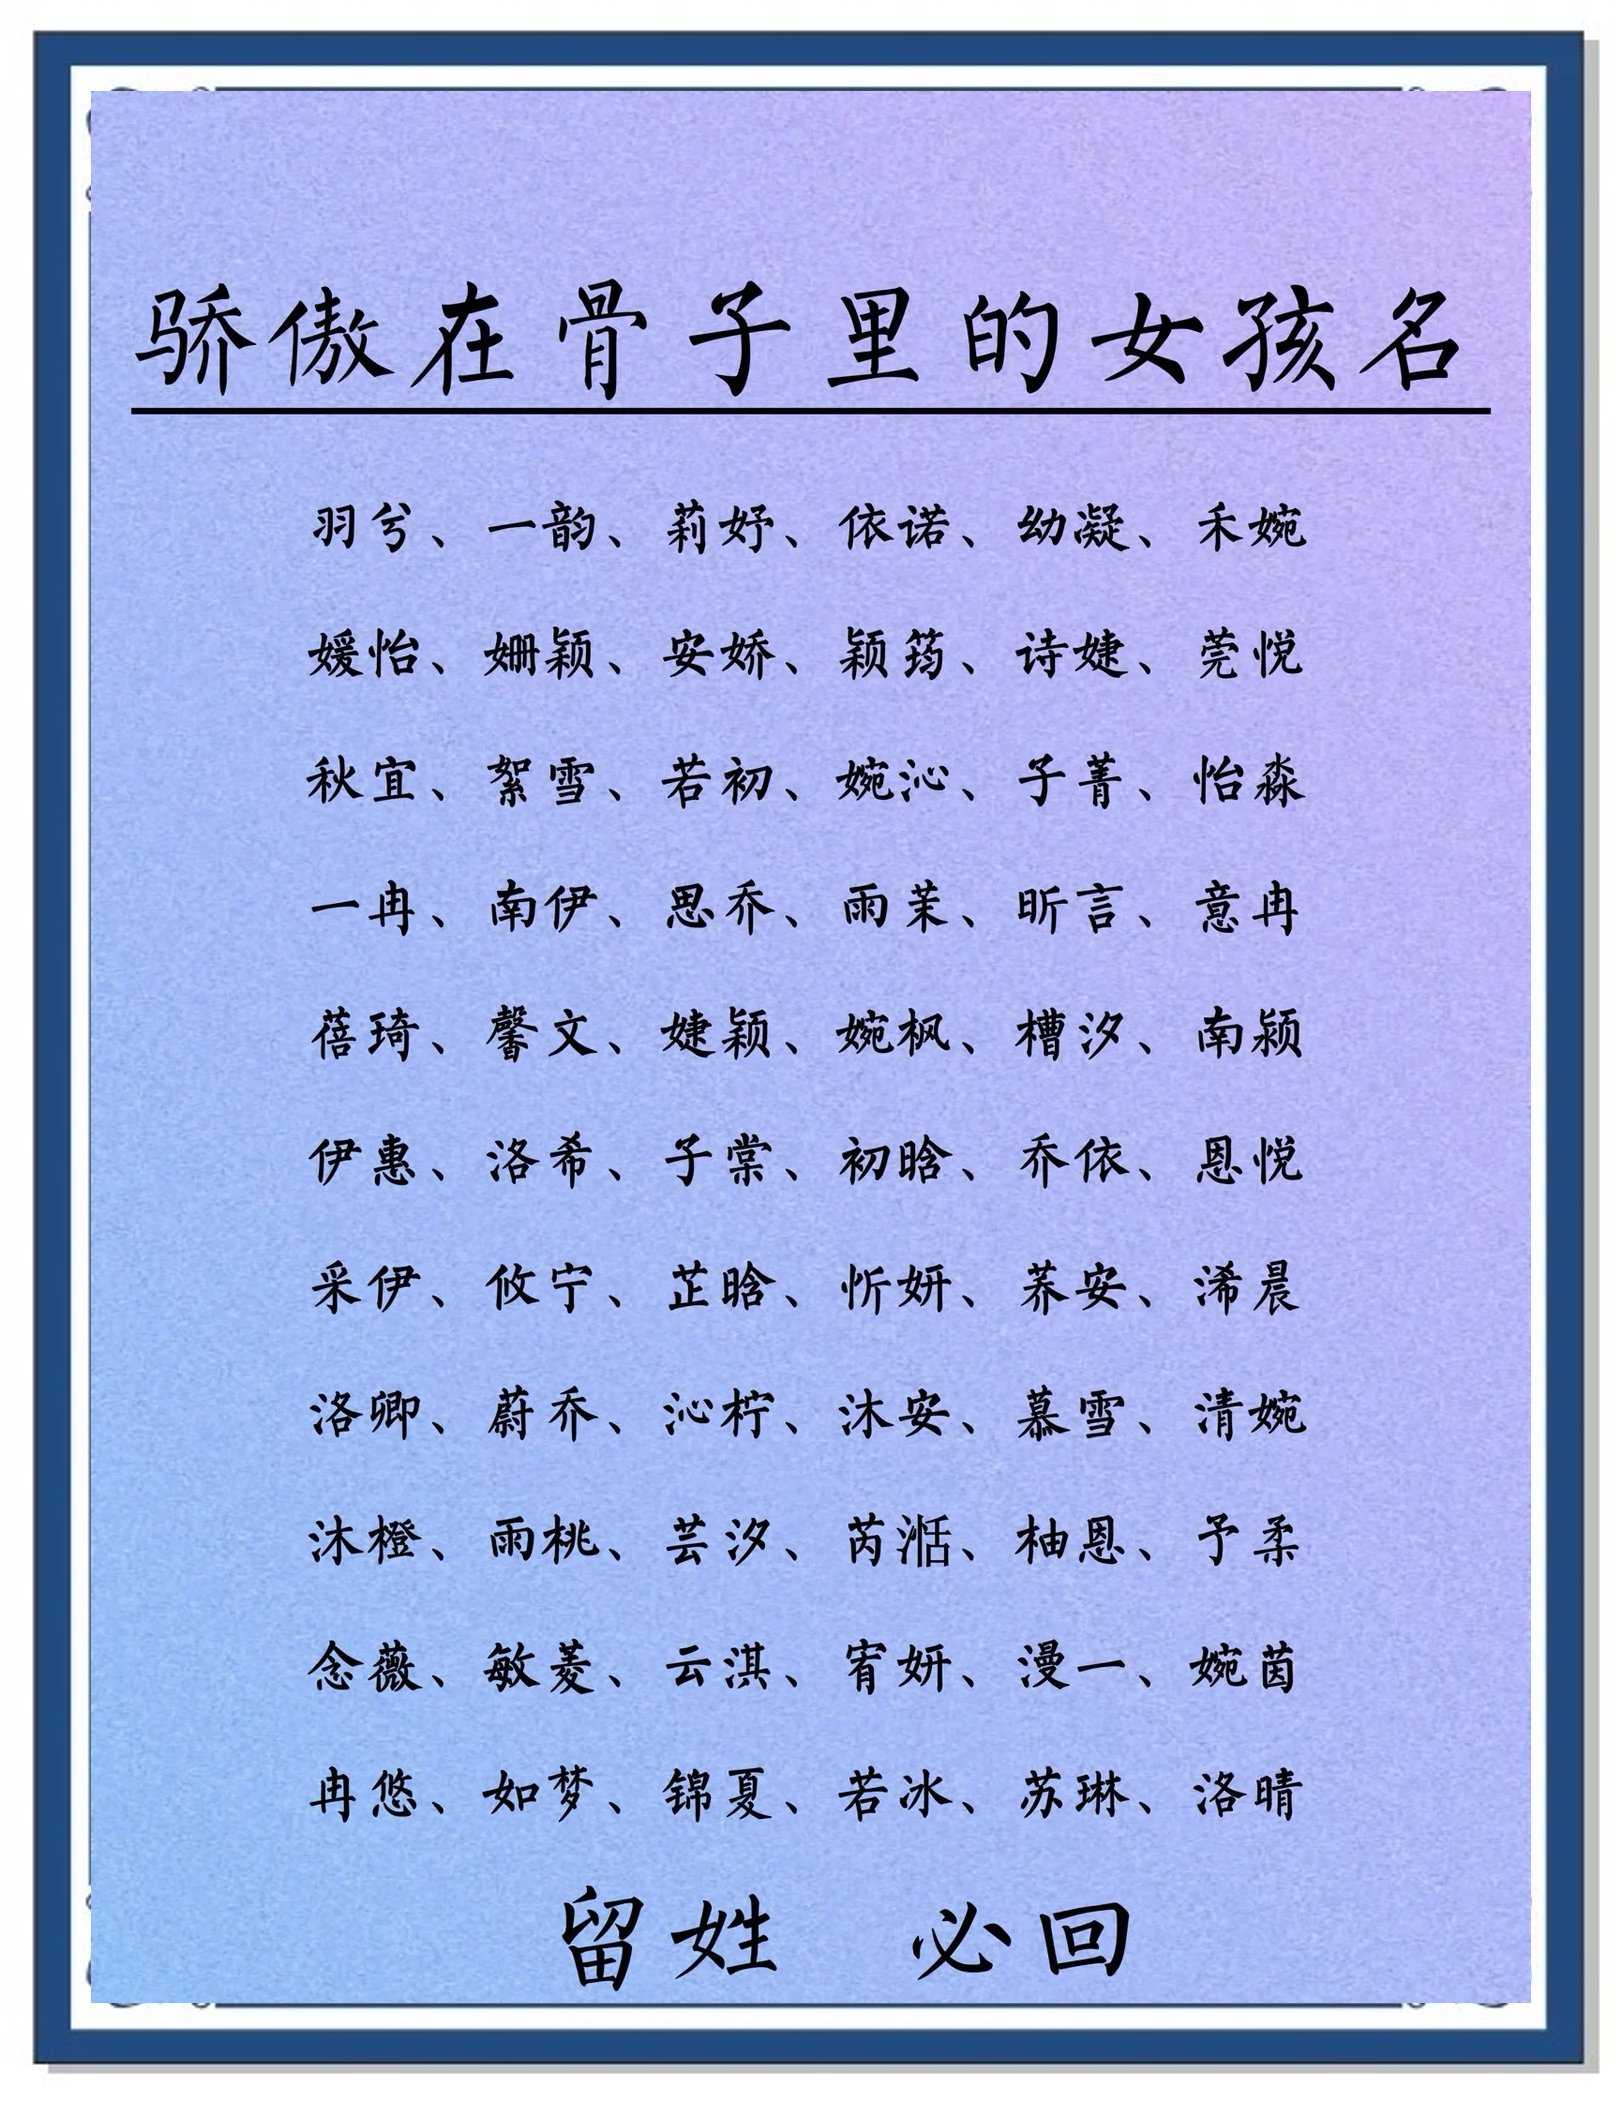 骄傲在骨子里的女孩名
羽兮、一韵、莉妤、依诺、幼凝、禾婉
媛怡、姗颖、安娇、颖筠、诗婕、莞悦
秋宜、絮雪、若初、婉沁、子菁、怡淼
一冉、南伊、思乔、雨茉、昕言、意冉
蓓琦、馨文、婕颖、婉枫、槽汐、南颍
伊惠、洛希、子棠、初晗、乔依、恩悦
采伊、攸宁、芷晗、忻妍、荞安、浠晨
洛卿、蔚乔、沁柠、沐安、慕雪、清婉
沐橙、雨桃、芸汐、芮湉、柚恩、予柔
念薇、敏菱、云淇、宥妍、漫一、婉茵
冉悠、如梦、锦夏、若冰、苏琳、洛晴
留姓 必回